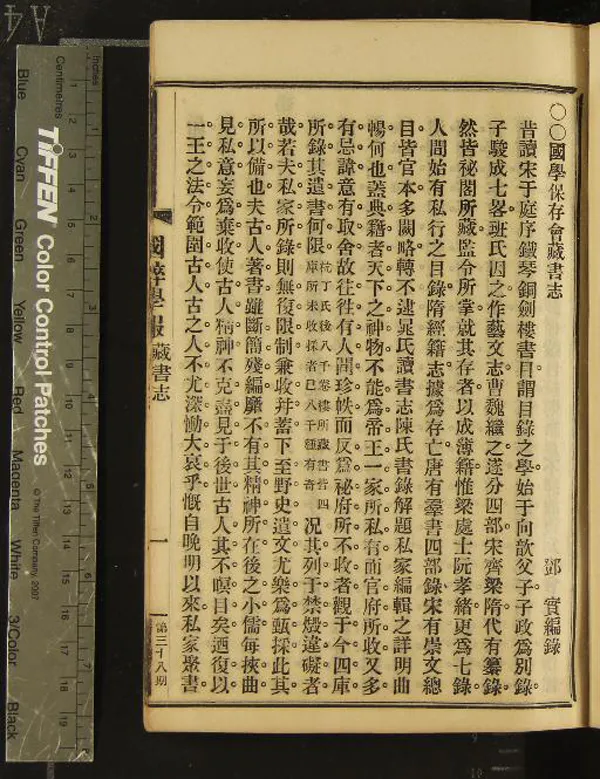 ○○國學保存會藏書志
鄧　實編錄
昔讀宋于庭序鐵琴銅劍樓書目謂目錄之學始于向歆父子子政爲別錄
子駿成七畧班氏因之作藝文志曹魏繼之遂分四部宋齊梁隋代有纂錄
然皆祕閣所藏監令所掌就其存者以成薄籍惟梁處士阮孝緒更爲七錄
人間始有私行之目錄隋經籍志據爲存亡唐有羣書四部錄宋有崇文總
目皆官本多闕略轉不逮晁氏讀書志陳氏書錄解題私家編輯之詳明曲
暢何也蓋典籍者天下之神物不能爲帝王一家所私有而官府所收又多
有忌諱意有取舍故往往有人間珍帙而反爲祕府所不收者觀于今四庫
所錄其遺書何限杭丁氏後八千卷樓所藏書皆四庫所未收採者已八千種有奇况其列于禁燬違礙者
哉若夫私家所錄則無復限制兼收幷蓄下至野史遺文尤樂爲甄採此其
所以備也夫古人著書雖斷簡殘編靡不有其精神所在後之小儒每挾曲
見私意妄爲棄收使古人精神不克盡見于後世古人其不瞑目矣迺復以
一王之法令範圍古人古之人不尤深慟大哀乎慨自晚明以來私家聚書
國粹學報
藏書志
一
第三十八期
Inches
Centimetres
TIFFEN Color Control Patches
© The Tiffen Company, 2007
Blue
Cyan
Green
Yellow
Red
Magenta
White
3/Color
Black
1
2
3
4
5
6
7
8
9
10
11
12
13
14
15
16
17
18
19
A4